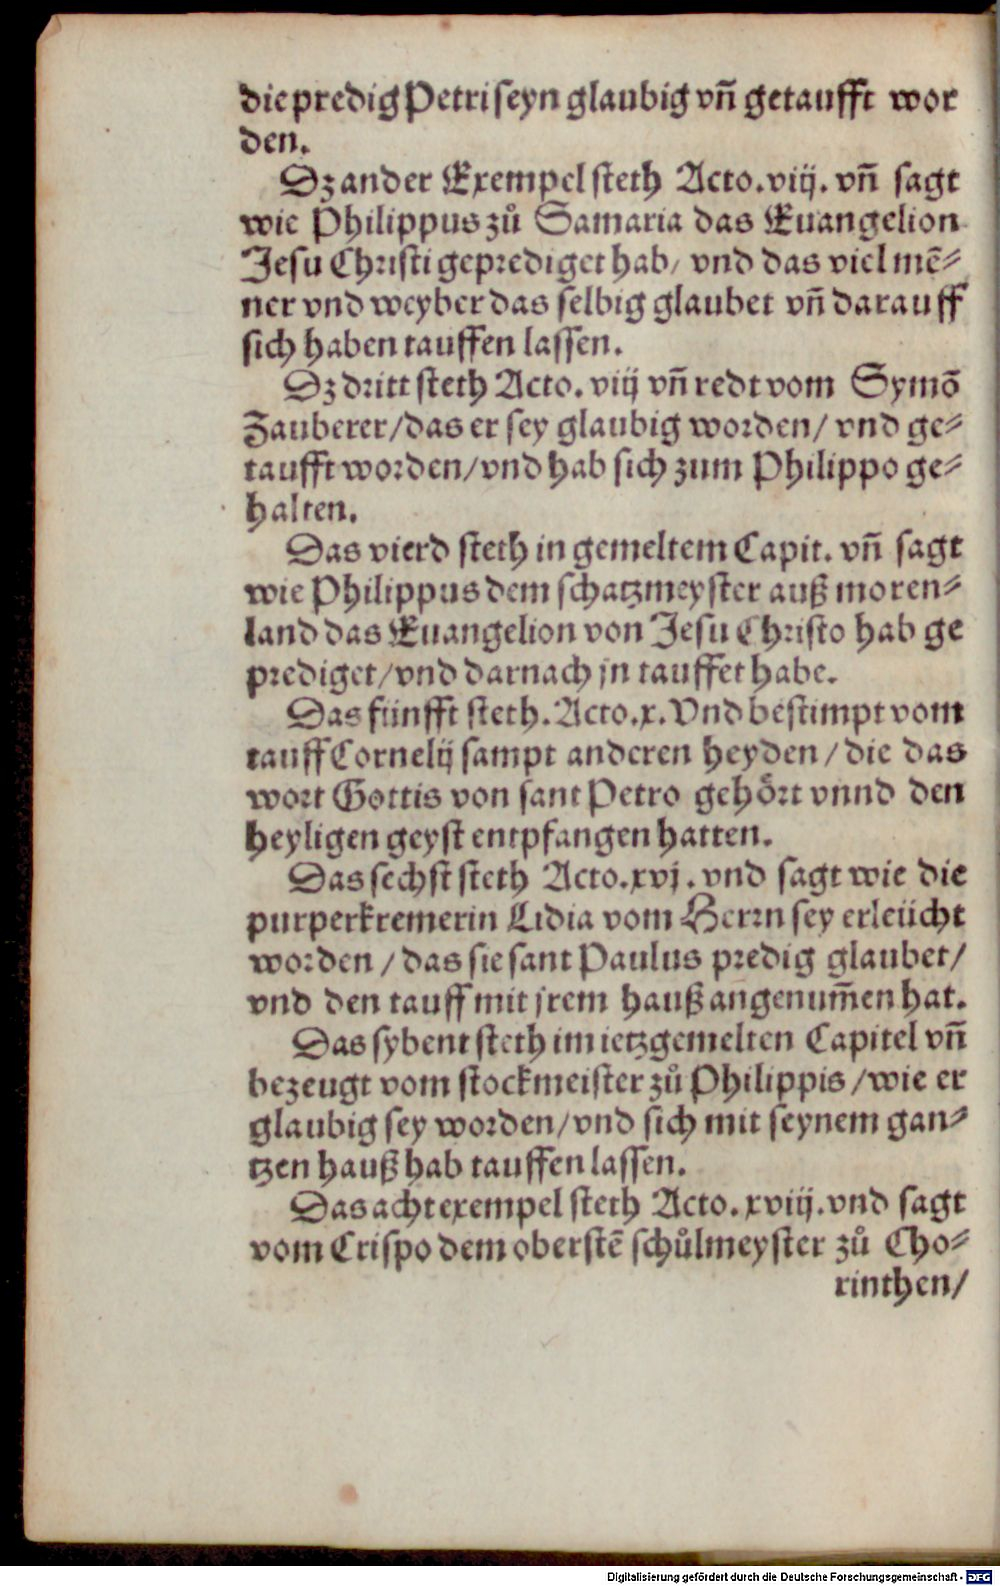 die predig Petri seyn glaubig vn̄ getaufft wor
den.
Dz ander Exempel steth Acto. viij. vn̄ sagt
wie Philippus zů Samaria das Euangelion
Jesu Christi geprediget hab/ vnd das viel mē⸗
ner vnd weyber das selbig glaubet vn̄ darauff
sich haben tauffen lassen.
Dz dritt steth Acto. viij vn̄ redt vom Symō
Zauberer/ das er sey glaubig worden/ vnd ge⸗
taufft worden/ vnd hab sich zum Philippo ge⸗
halten.
Das vierd steth in gemeltem Capit. vn̄ sagt
wie Philippus dem schatzmeyster auß moren⸗
land das Euangelion von Jesu Christo hab ge
prediget/ vnd darnach jn tauffet habe.
Das fünfft steth. Acto. x. Vnd bestimpt vom
tauff Cornelij sampt anderen heyden/ die das
wort Gottis von sant Petro gehört vnnd den
heyligen geyst entpfangen hatten.
Das sechst steth Acto. xvj. vnd sagt wie die
purperkremerin Lidia vom Herrn sey erleücht
worden/ das sie sant Paulus predig glaubet/
vnd den tauff mit jrem hauß angenum̄en hat.
Das sybent steth im ietzgemelten Capitel vn̄
bezeugt vom stockmeister zů Philippis/ wie er
glaubig sey worden/ vnd sich mit seynem gan⸗
tzen hauß hab tauffen lassen.
Das acht exempel steth Acto. xviij. vnd sagt
vom Crispo dem oberstē schůlmeyster zů Cho⸗
rinthen/
Digitalisierung gefördert durch die Deutsche Forschungsgemeinschaft - DFG